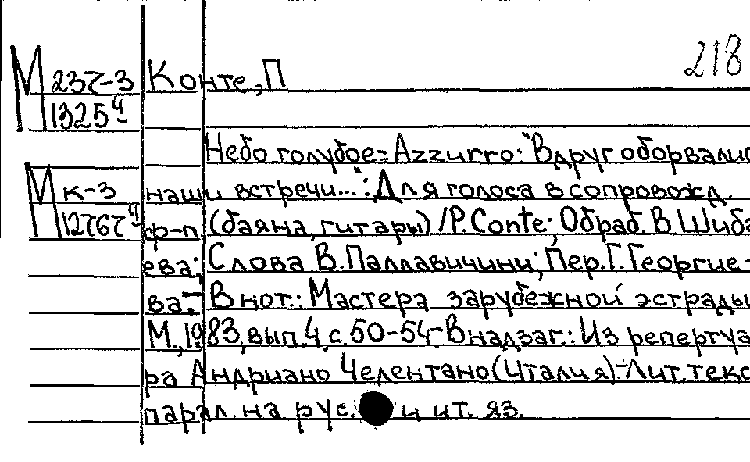 218
М 237-3 Конте, П
1325ч
Небо голубое = Azzurro: "Вдруг оборвалис
М к-3 наши встречи...": Для голоса в сопровожд.
12767ч ф-п (баяна, гитары) / P. Conte; Обраб. В. Шиба
ева; Слова В. Паллавичини; Пер. Г. Георгие-
ва.- В нот.: Мастера зарубежной эстрады
М., 1983, вып. 4, с. 50-54.- В надзаг.: Из репертуа
ра Андриано Челентано (Италия).- Лит. текс
парал. на рус. и ит. яз.